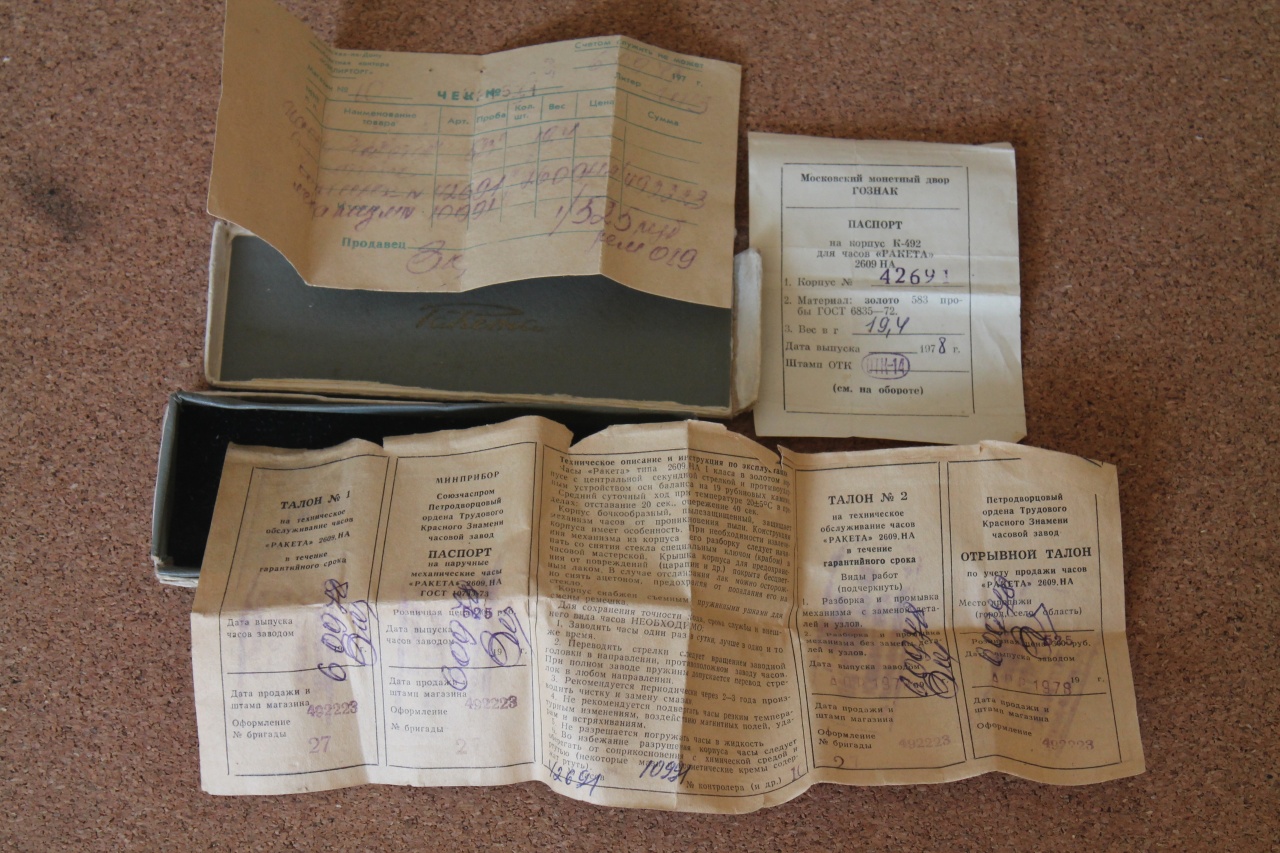 Счетом служить не может
197 г.
№ 10
Литер
ЧЕК №
Наименование товара
Арт.
Проба
Кол. шт.
Вес
Цена
Сумма
42691
492223
10991
525 руб
рем 019
Продавец
Ракета
Московский монетный двор
ГОЗНАК
ПАСПОРТ
на корпус К-492
для часов «РАКЕТА»
2609 НА
1. Корпус № 42691
2. Материал: золото 583 про-
бы ГОСТ 6835—72.
3. Вес в г 19,4
Дата выпуска 1978 г.
Штамп ОТК ОТК-14
(см. на обороте)
ТАЛОН № 1
на техническое
обслуживание часов
«РАКЕТА» 2609.НА
в течение
гарантийного срока
Дата выпуска
часов заводом
Дата продажи и
штамп магазина
492223
Оформление
№ бригады
27
МИНПРИБОР
Союзчаспром
Петродворцовый
ордена Трудового
Красного Знамени
часовой завод
ПАСПОРТ
на наручные
механические часы
«РАКЕТА» 2609.НА
Розничная цена 525
Дата выпуска
часов заводом
Дата продажи
штамп магазина
492223
Оформление
№ бригады
27
Техническое описание и инструкция по эксплуата
Часы «Ракета» типа 2609.НА I класса в золотом
пусе с центральной секундной стрелкой и противоудар
ным устройством оси баланса на 19 рубиновых камнях
Средний суточный ход при температуре 20±5°С в пре
делах: отставание 20 сек., опережение 40 сек.
Корпус бочкообразный, пылезащищенный, защищает
механизм часов от проникновения пыли. Конструкция
корпуса имеет особенность. При необходимости извлече
ния механизма из корпуса разборку следует начи
нать со снятия стекла специальным ключом (крабом) в
часовой мастерской. Крышка корпуса для предохране
ния от повреждений (царапин и др.) покрыта бесцвет
ным лаком. В случае отслаивания лак можно осторож
но снять ацетоном, предохраняя от попадания его на
Корпус снабжен съемными пружинными ушками для
смены ремешка.
Для сохранения точности хода, срока службы и внеш-
него вида часов НЕОБХОДИМО
1. Заводить часы один раз в сутки, лучше в одно и то
же время.
2. Переводить стрелки следует вращением заводной
головки в направлении, противоположном заводу часов.
При полном заводе пружины допускается перевод стре-
лок в любом направлении.
3. Рекомендуется периодически через 2—3 года произ-
водить чистку и замену смазки
4. Не рекомендуется подвергать часы резким темпера-
турным изменениям, воздействию магнитных полей, уда-
рам и встряхиваниям.
5. Не разрешается погружать часы в жидкость
6. Во избежание разрушения корпуса часы следует
оберегать от соприкосновения с химической средой и
ртутью (некоторые косметические кремы содер-
жат ртуть).
42691 10991 № контролера (и др.)
ТАЛОН № 2
на техническое
обслуживание часов
«РАКЕТА» 2609.НА
в течение
гарантийного срока
Виды работ
(подчеркнуть)
1. Разборка и промывка
механизма с заменой дета-
лей и узлов.
2. Разборка и промывка
механизма без замены дета-
лей и узлов.
Дата выпуска заводом
Дата продажи и
штамп магазина
Оформление
№ бригады
492223
2
Петродворцовый
ордена Трудового
Красного Знамени
часовой завод
ОТРЫВНОЙ ТАЛОН
по учету продажи часов
«РАКЕТА» 2609.НА
Место продажи
(город, село, область)
Розничная цена 525 руб.
Дата выпуска заводом
1978 19 г.
Дата продажи и
штамп магазина
Оформление
492223